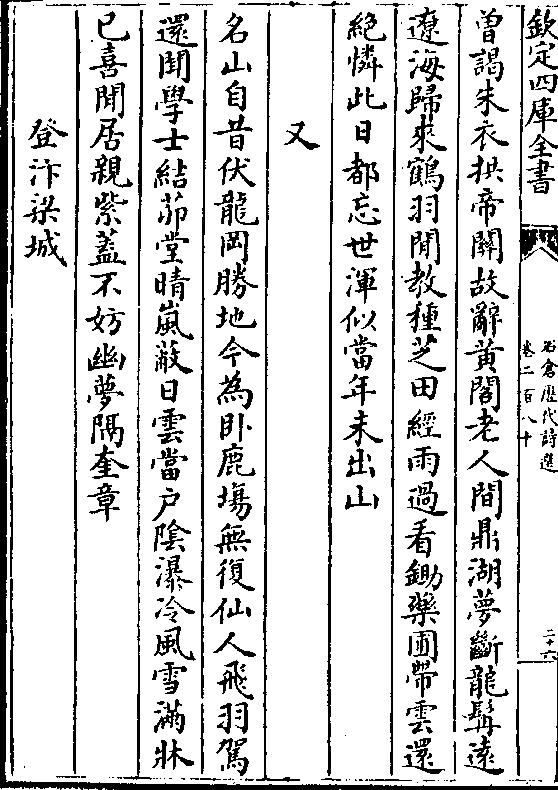 欽定四庫全書
石倉歷代詩選
卷二百八十
二十六
曾謁朱衣拱帝關故辭黃閣老人間鼎湖夢斷龍髯遠
遼海歸來鶴羽閒教種芝田經雨過看鋤藥圃帶雲還
絶憐此日都忘世渾似當年未出山
又
名山自昔伏龍岡勝地今為卧鹿塲無復仙人飛羽駕
還聞學士結茆堂晴嵐蔽日雲當户陰瀑冷風雪滿牀
已喜閒居親紫蓋不妨幽夢隔奎章
登汴梁城